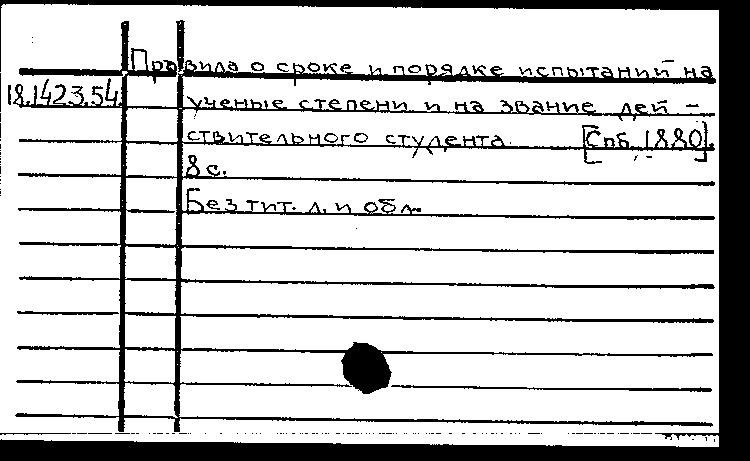 Правила о сроке и порядке испытаний на
18.1423.54. ученые степени и на звание дей-
ствительного студента. [Спб. 1880].
8 с.
Без тит. л. и обл.